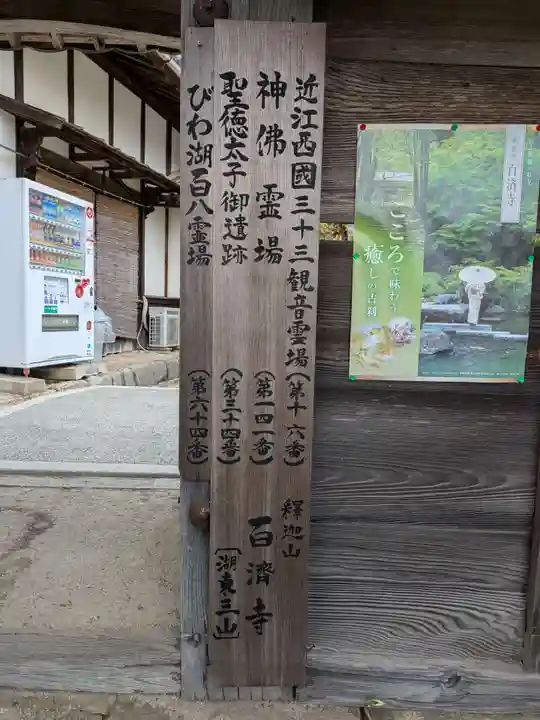 近江西國三十三観音霊場(第十六番)
神佛霊場(第一四一番)
聖徳太子御遺跡(第三十四番)
びわ湖百八霊場(第六十四番)
釋迦山
百濟寺
〔湖東三山〕
百済寺
こころで味わう
癒しの古刹